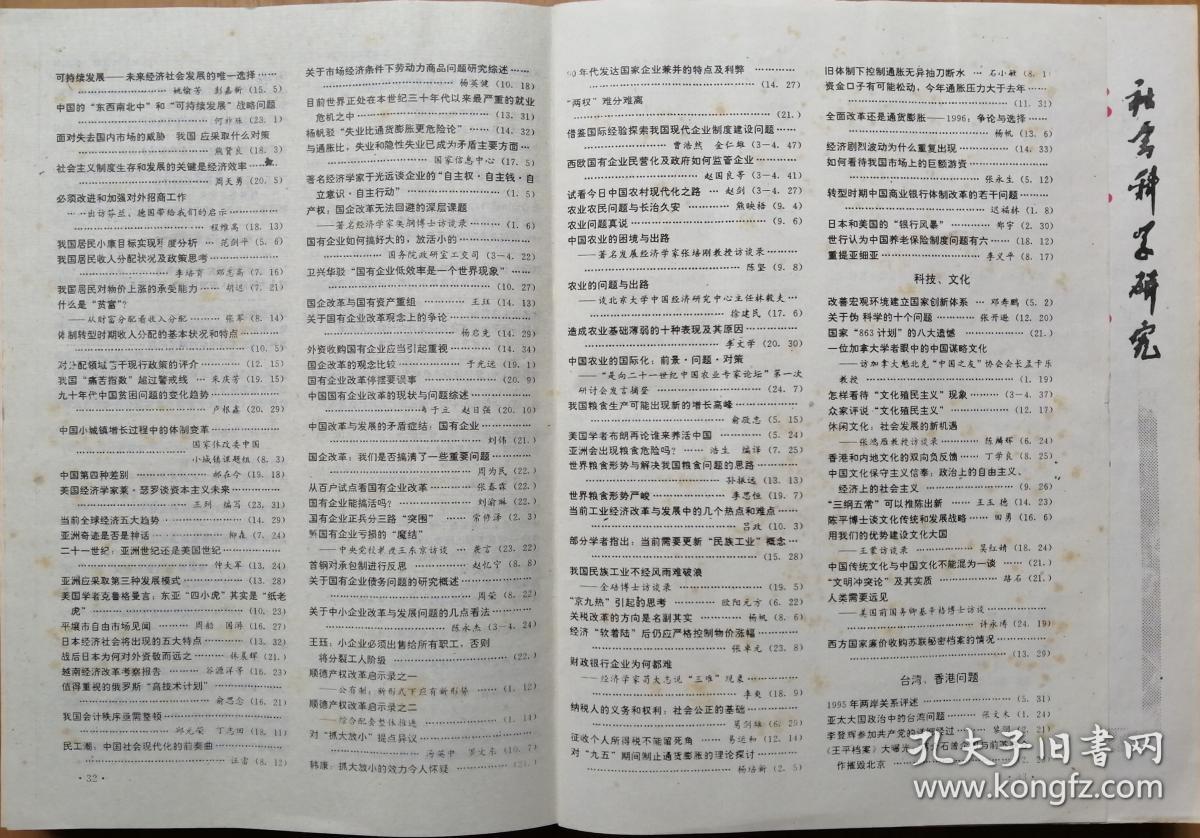 可持续发展——未来经济社会发展的唯一选择……
……………姚愉芳 彭嘉新（15. 5）
中国的“东西南北中”和“可持续发展”战略问题
……………（23. 1）
面对失去国内市场的威胁 我国应采取什么对策
……………熊贤良（18. 3）
社会主义制度生存和发展的关键是经济效率……
……………周天勇（20. 5）
必须改进和加强对外招商工作
——出访芬兰、德国带给我们的启示……………
……………程维高（18. 13）
我国居民小康目标实现程度分析 …… 范剑平（5. 6）
我国居民收入分配状况及政策思考……………
……………李培育 邓志高（7. 16）
我国居民对物价上涨的承受能力…… 胡迟（7. 21）
什么是“贫富”？
——从财富分配看收入分配…… 张军（8. 14）
体制转型时期收入分配的基本状况和特点……
……………（10. 5）
对分配领域若干现行政策的评介……（12. 15）
我国“痛苦指数”超过警戒线 …… 朱庆芳（19. 15）
九十年代中国贫困问题的变化趋势……………
……………卢根鑫（20. 29）
中国小城镇增长过程中的体制变革……………
……………国家体改委中国
小城镇课题组（8. 3）
中国第四种差别 ……………郝在今（19. 18）
美国经济学家莱·瑟罗谈资本主义未来……
……………王列 编写（23. 31）
当前全球经济五大趋势……………（14. 29）
亚洲奇迹是否是神话……………柳森（7. 24）
二十一世纪：亚洲世纪还是美国世纪……………
……………仲大军（13. 24）
亚洲应采取第三种发展模式……………（13. 28）
美国学者克鲁格曼言：东亚“四小虎”其实是“纸老
虎”……………（10. 23）
平壤市自由市场见闻 …… 周船 国涛（16. 27）
日本经济社会将出现的五大特点……（13. 32）
战后日本为何对外资敬而远之…… 林晨辉（21. ）
越南经济改革考察报告 …… 谷源洋等（16. 23）
值得重视的俄罗斯“高技术计划”……………
……………俞思念（16. 21）
我国会计秩序亟需整顿……………
……………邱元荣 丁志国（18. 11）
民工潮：中国社会现代化的前奏曲……………
……………汪雷（8. 12）
·32·
关于市场经济条件下劳动力商品问题研究综述……
……………杨英健（10. 18）
目前世界正处在本世纪三十年代以来最严重的就业
危机之中……………（13. 31）
杨帆驳“失业比通货膨胀更危险论”……（14. 32）
与通胀比，失业和隐性失业已成为矛盾主要方面…
……………国家信息中心（17. 5）
著名经济学家于光远谈企业的“自主权·自主钱·自
立意识·自主行动”……………（1. 5）
产权：国企改革无法回避的深层课题
——著名经济学家吴稼博士访谈录……（1. 6）
国有企业如何搞好大的，放活小的……………
……………国务院政研室工交司（3—4. 22）
卫兴华驳“国有企业低效率是一个世界现象”……
……………（10. 27）
国企改革与国有资产重组 …… 王珏（14. 13）
关于国有企业改革观念上的争论……………
……………杨启先（14. 29）
外资收购国有企业应当引起重视……（14. 34）
国企改革的观念比较…… 于光远（19. 1）
国有企业改革停摆要误事 ……………（20. 9）
中国国有企业改革的现状与问题综述……………
……………于立 赵日强（20. 10）
中国改革与发展的矛盾症结：国有企业……
……………刘伟（21. ）
国企改革：我们是否搞清了一些重要问题……
……………周为民（22. ）
从百户试点看国有企业改革…… 张春霖（22. ）
国有企业能搞活吗？ ……………刘瀹琳（22. ）
国有企业正兵分三路“突围” …… 常修泽（2. 3）
解国有企业亏损的“魔结”
——中央党校教授王东京访谈…… 龚言（23. 22）
首钢对承包制进行反思…… 赵忆宁（8. 8）
关于国有企业债务问题的研究概述……………
……………周荣（8. 22）
关于中小企业改革与发展问题的几点看法……
……………陈永杰（3—4. 24）
王珏：小企业必须出售给所有职工，否则
将分裂工人阶级……………（22. ）
顺德产权改革启示录之一
——公有制：新形式下应有新形势……（1. 12）
顺德产权改革启示录之二
——综合配套整体推进……………（1. 14）
对“抓大放小”提点异议……………
……………汤英中 罗文东（10. 7）
韩康：抓大放小的效力令人怀疑……
90年代发达国家企业兼并的特点及利弊……
……………（14. 27）
“两权”难分难离
……………（21. ）
借鉴国际经验探索我国现代企业制度建设问题……
……………曹浩然 金仁雄（3—4. 47）
西欧国有企业民营化及政府如何监管企业……
……………赵国良等（3—4. 41）
试看今日中国农村现代化之路 …… 赵剑（3—4. 27）
农业农民问题与长治久安…… 熊映梧（9. 4）
农业问题真说……………（9. 6）
中国农业的困境与出路
——著名发展经济学家张培刚教授访谈录……
……………陈坚（9. 8）
农业的问题与出路
——谈北京大学中国经济研究中心主任林毅夫…
……………徐建民（17. 6）
造成农业基础薄弱的十种表现及其原因……
……………李文学（20. 30）
中国农业的国际化：前景·问题·对策
——“是向二十一世纪中国农业专家论坛”第一次
研讨会发言摘登……………（24. 7）
我国粮食生产可能出现新的增长高峰……………
……………俞敬忠（5. 15）
美国学者布朗再论谁来养活中国……（5. 24）
亚洲会出现粮食危险吗？…… 浩生 编译（7. 25）
世界粮食形势与解决我国粮食问题的思路……
……………孙振远（13. 13）
世界粮食形势严峻 ……………李思恒（19. 7）
当前工业经济改革与发展中的几个热点和难点……
……………吕政（10. 3）
部分学者指出：当前需要更新“民族工业”概念…
……………（15. 28）
我国民族工业不经风雨难破浪
——金碚博士访谈录……………（19. 5）
“京九热”引起的思考 …… 欧阳元方（6. 22）
关税改革的方向是名副其实…… 杨帆（8. 6）
经济“软着陆”后仍应严格控制物价涨幅……
……………张卓元（23. 8）
财政银行企业为何都难
——经济学家苟大志说“三难”现象……………
……………李爽（18. 9）
纳税人的义务和权利：社会公正的基础……
……………葛剑雄（6. 29）
征收个人所得税不能留死角 …… 易运和（12. 14）
对“九五”期间制止通货膨胀的理论探讨……
……………杨培新（2. 5）
旧体制下控制通胀无异抽刀断水 …… 石小敏（8. 1）
资金口子有可能松动，今年通胀压力大于去年……
……………（11. 31）
全面改革还是通货膨胀——1996：争论与选择……
……………杨帆（13. 6）
经济剧烈波动为什么重复出现……（14. 33）
如何看待我国市场上的巨额游资……………
……………张永生（5. 12）
转型时期中国商业银行体制改革的若干问题……
……………迟福林（1. 8）
日本和美国的“银行风暴”…… 郑宇（2. 30）
世行认为中国养老保险制度问题有六……（18. 12）
重提亚细亚……………李义平（8. 17）
科技、文化
改善宏观环境建立国家创新体系 …… 邓寿鹏（5. 2）
关于伪科学的十个问题…… 张开逊（12. 20）
国家“863计划”的八大遗憾 ……（21. ）
一位加拿大学者眼中的中国谋略文化
——访加拿大魁北克“中国之友”协会会长孟于乐
教授……………（1. 19）
怎样看待“文化殖民主义”现象……（3—4. 37）
众家评说“文化殖民主义”……（12. 17）
休闲文化：社会发展的新机遇
——张鸿雁教授访谈录…… 陈麟辉（6. 24）
香港和内地文化的双向负反馈…… 丁学良（8. 25）
中国文化保守主义信奉：政治上的自由主义、
经济上的社会主义 ……………（9. 26）
“三纲五常”可以推陈出新 …… 王玉德（14. 23）
陈平博士谈文化传统和发展战略…… 田勇（16. 6）
用我们的优势建设文化大国
——王蒙访谈录…… 吴红婧（18. 24）
中国传统文化与中国文化不能混为一谈……（21. ）
“文明冲突论”及其实质 …… 路石（21. ）
人类需要远见
——美国前国务卿基辛格博士访谈……
……………许永涛（24. 19）
西方国家廉价收购苏联秘密档案的情况……
……………（13. 29）
台湾、香港问题
1995年两岸关系评述……………（5. 31）
亚太大国政治中的台湾问题…… 张文木（1. 24）
李登辉参加共产党的
《王平档案》大曝光
作摧毁北京……………（2. 25）
社会科学研究
孔夫子旧书网
www.kongfz.com